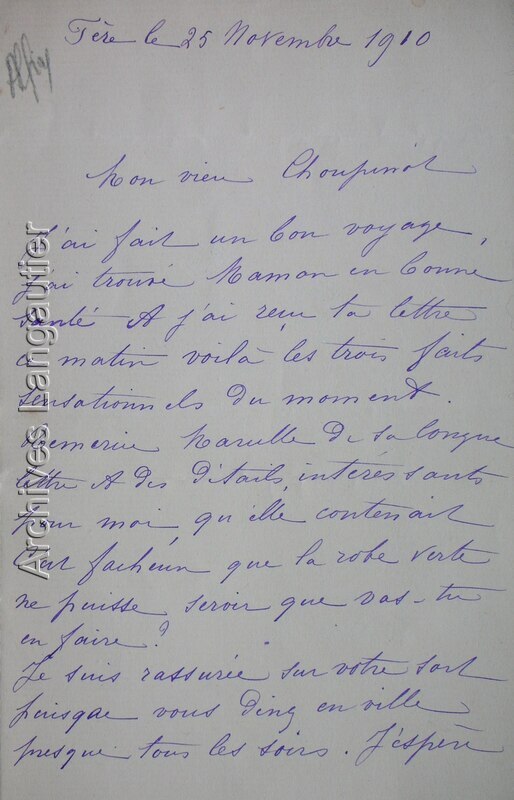 Fère le 25 Novembre 1910
Mon vieu Choupinot
J'ai fait un bon voyage,
j'ai trouvé Maman en bonne
santé et j'ai reçu ta lettre
ce matin voilà les trois faits
sensationnels du moment.
Remercie Marcelle de sa longue
lettre et des détails, intéressants
pour moi, qu'elle contenait
C'est facheux que la robe verte
ne puisse servir que vas-tu
en faire?
Je suis rassurée sur votre sort
puisque vous dinez en ville
presque tous les soirs. J'espère
Archives Langautier